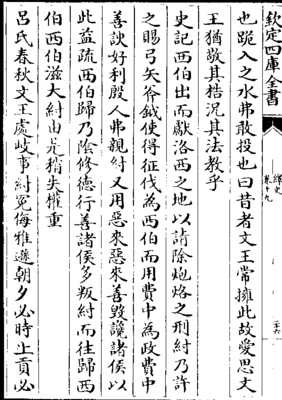 欽定四庫全書
繹史
卷十九
也跪入之水弗敢投也曰昔者文王常擁此故愛思文
王猶敬其梏況其法教乎
史記西伯出而獻洛西之地以請除炮烙之刑紂乃許
之賜弓矢斧鉞使得征伐為西伯而用費中為政費中
善諛好利殷人弗親紂又用惡來惡來善毀讒諸侯以
此益疏西伯歸乃陰修德行善諸侯多叛紂而往歸西
伯西伯滋大紂由是稍失權重
呂氏春秋文王處岐事紂冤侮雅遜朝夕必時上貢必